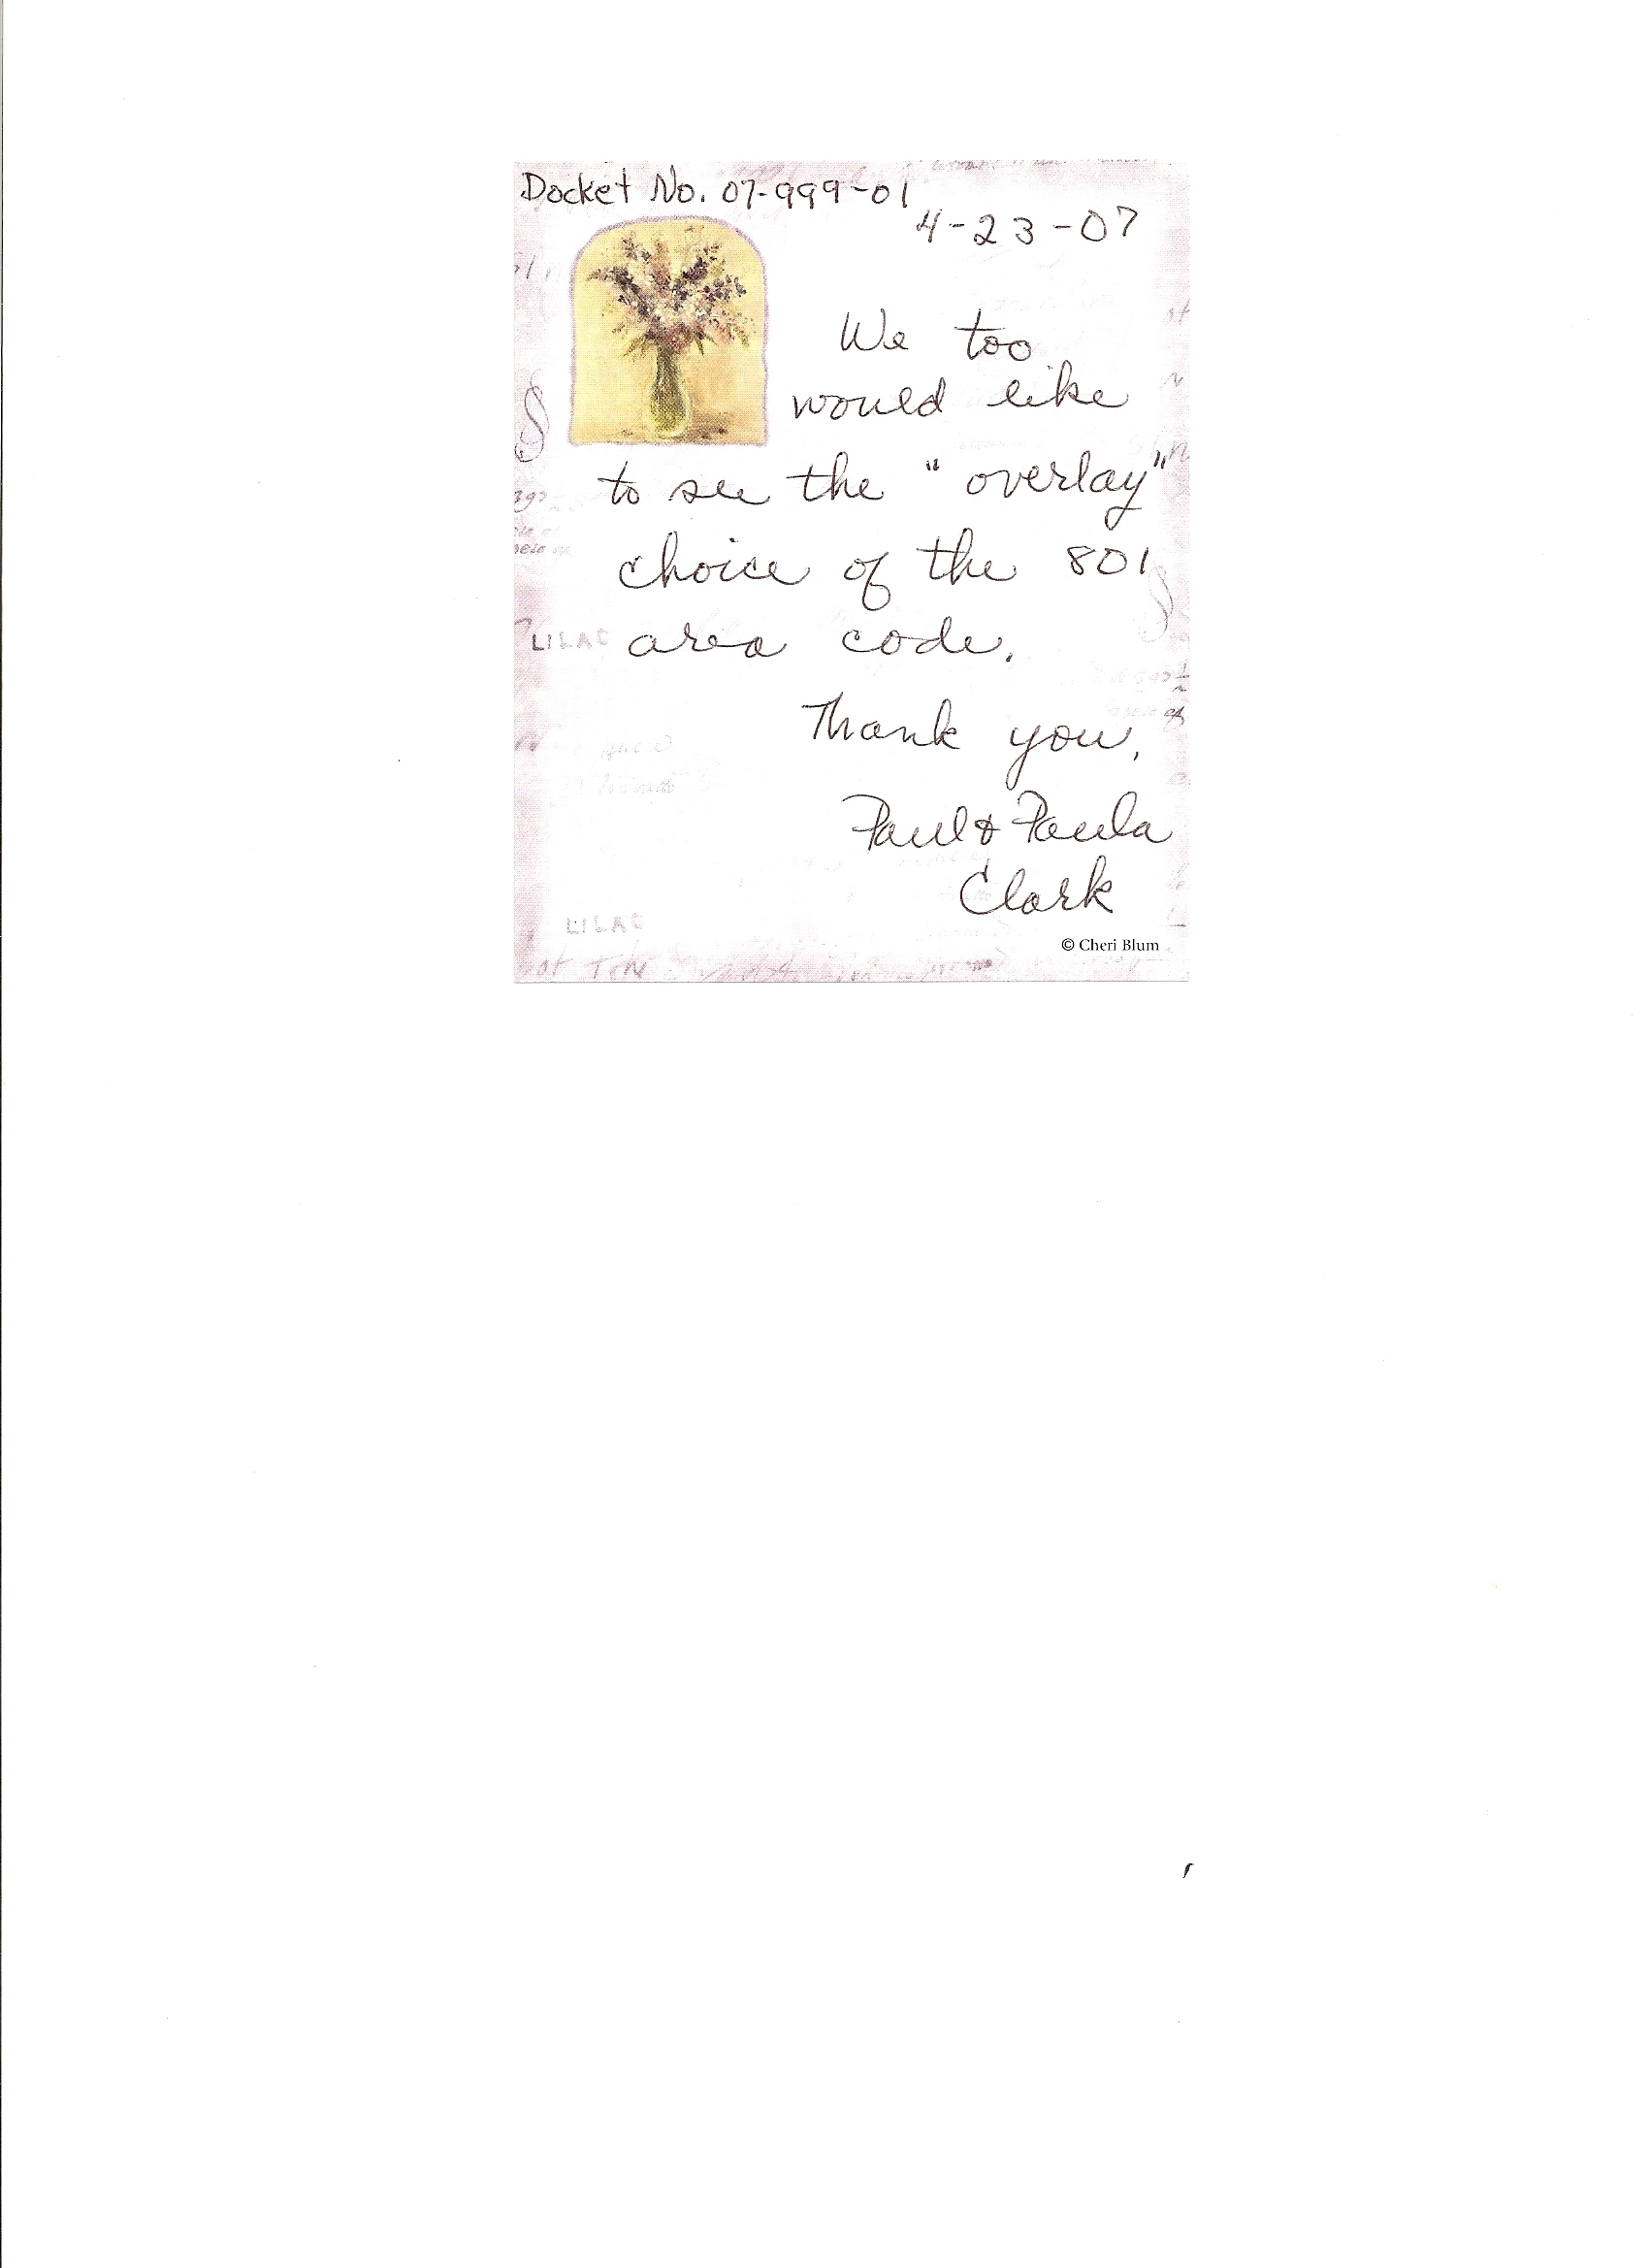 Docket No. 07-999-01
4-23-07
We too
would like
to see the "overlay"
choice of the 801
area code.
Thank you,
Paul & Paula
Clark
LILAC
LILAC
© Cheri Blum